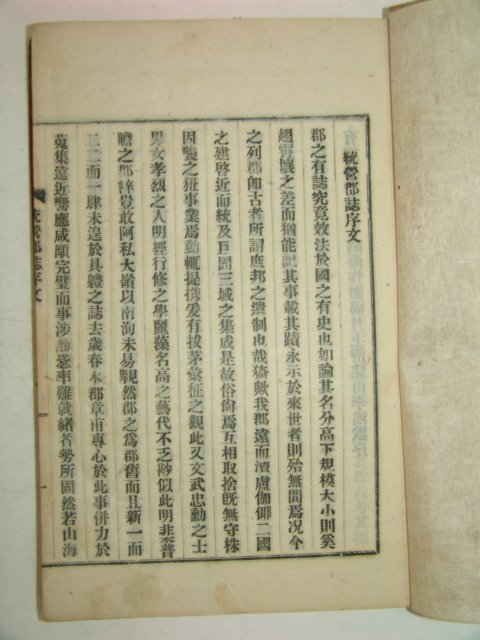 統營郡誌序文
郡之有誌究竟效法於國之有史也如論其名分高下規模大小則奚
趐霄壤之差而猶能記其事載其蹟永示於來世者則殆無間焉况今
之列郡卽古者所謂庶邦之遺制也哉猗歟我郡遠而瀆盧伽倻二國
之建啓近而統及巨固三域之集成是故俗尙焉互相取捨旣無守株
因襲之紐事業焉動輒提携爰有拔茅彙征之觀此又文武忠勳之士
男女孝烈之人明經行修之學麗藻名高之藝代不乏尠似此明非菜普
贍之郡粹豈敢阿私大嶺以南洵未易覩然郡之爲郡舊而且新一而
二二而一肆未遑於具體之誌去歲春本郡章甫專心於此事併力於
蒐集遠近響應咸願完璧而事涉刱毖率難就緖者勢所固然若山海
統營郡誌序文